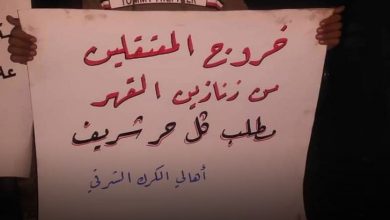 خروج المعتقلين
من زنازين القهر
مطلب كل حر شريف
أهالي الكرك الشرقي